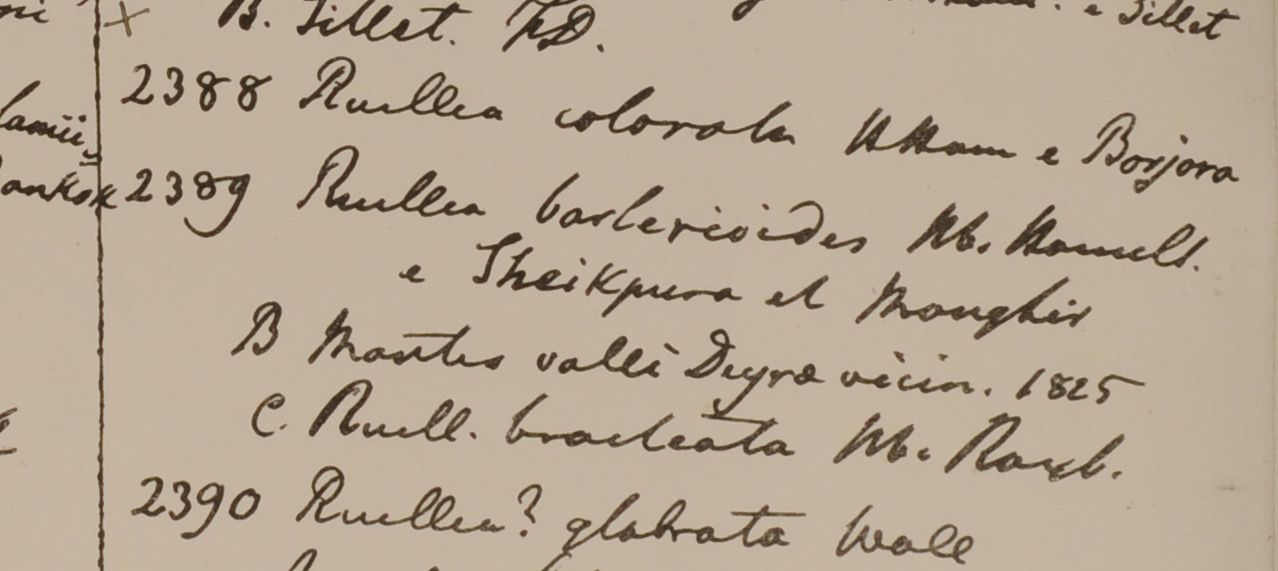 B. Sillet. F.D.
e Sillet
2388 Ruellia colorata HHam e Borjora
2389 Ruellia barlerioides Hb. Hamilt.
e Sheikpura et Monghir
B Montes valli Deyræ vicin. 1825
C. Ruell. bracteata Hb. Roxb.
2390 Ruellia? glabrata Wall